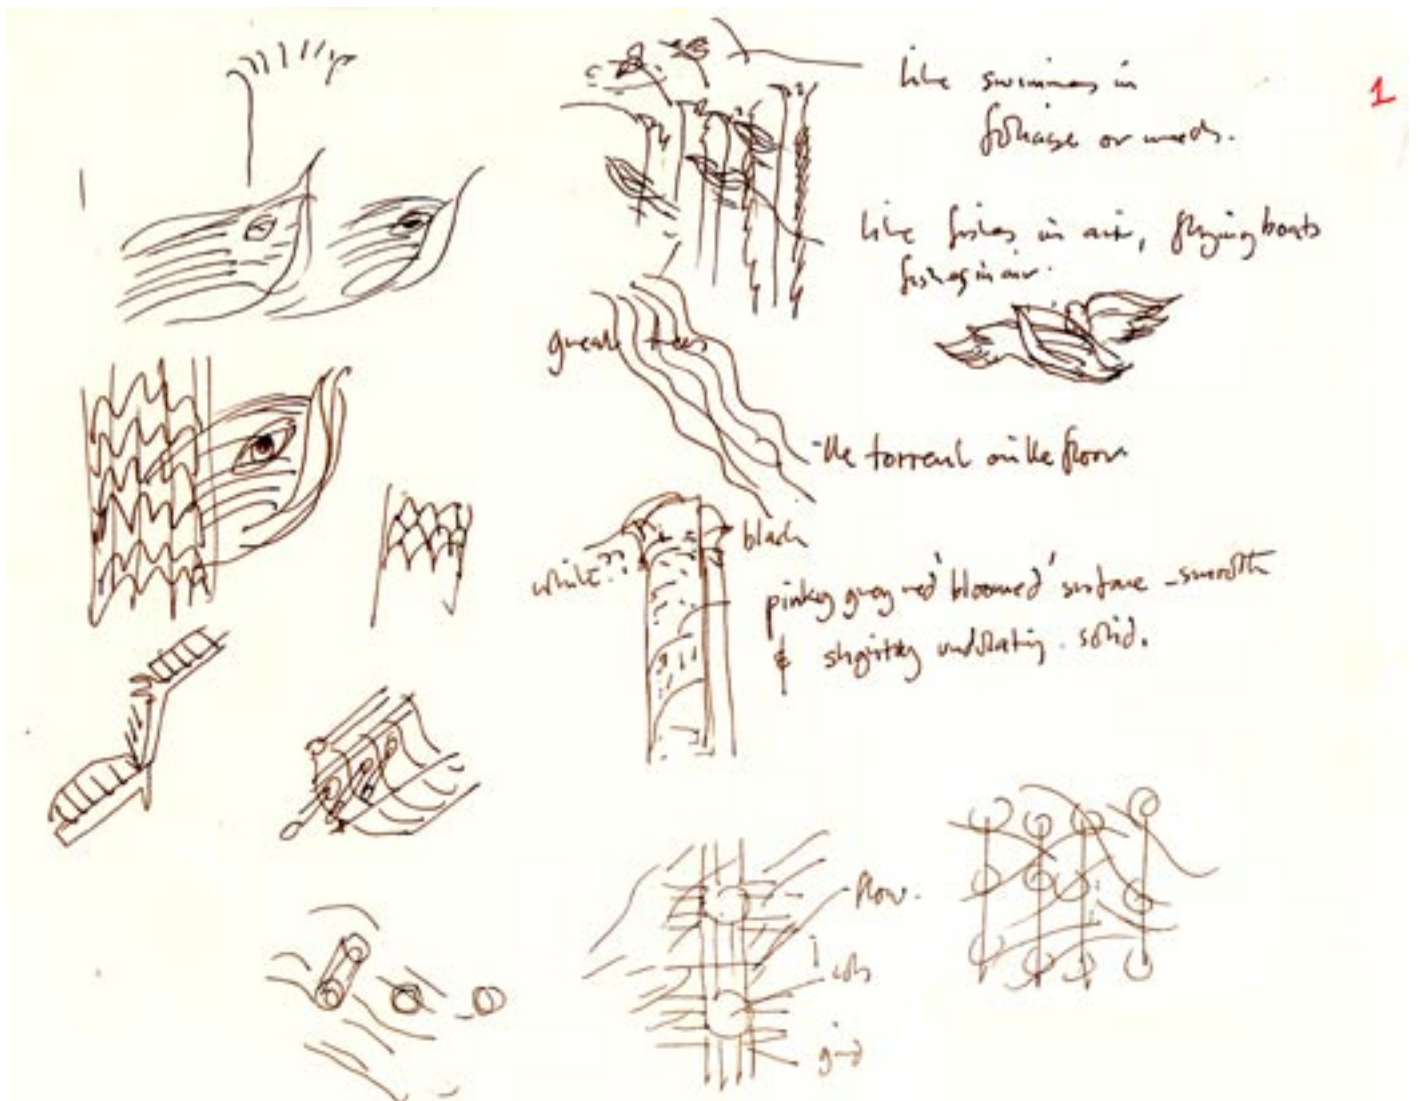 1
like swimmers in
foliage or weeds.
like fishes in air, flying boats
fishes in air.
great trees
the torrent on the floor
black
white??
pinky grey red 'bloomed' surface - smooth
& slightly undulating. solid.
flow.
cols
grid